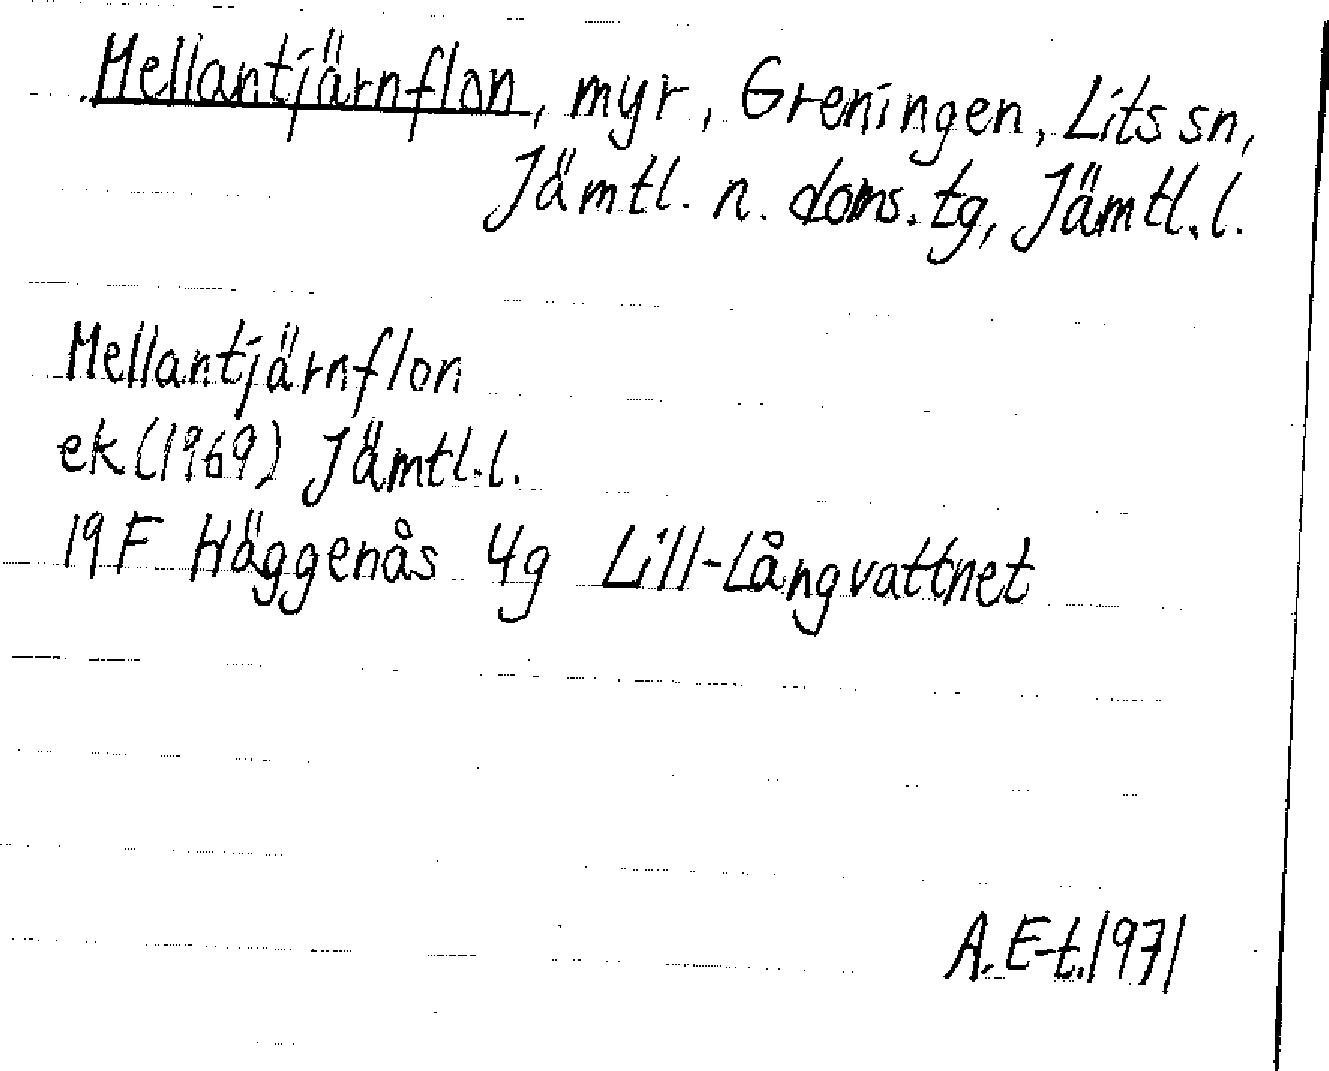 Mellantjärnflon, myr, Greningen, Lits sn,
Jämtl. n. doms. tg, Jämtl. l.
Mellantjärnflon
ek (1969) Jämtl. l.
19F Häggenås 4g Lill-Långvattnet
A. E-t. 1971